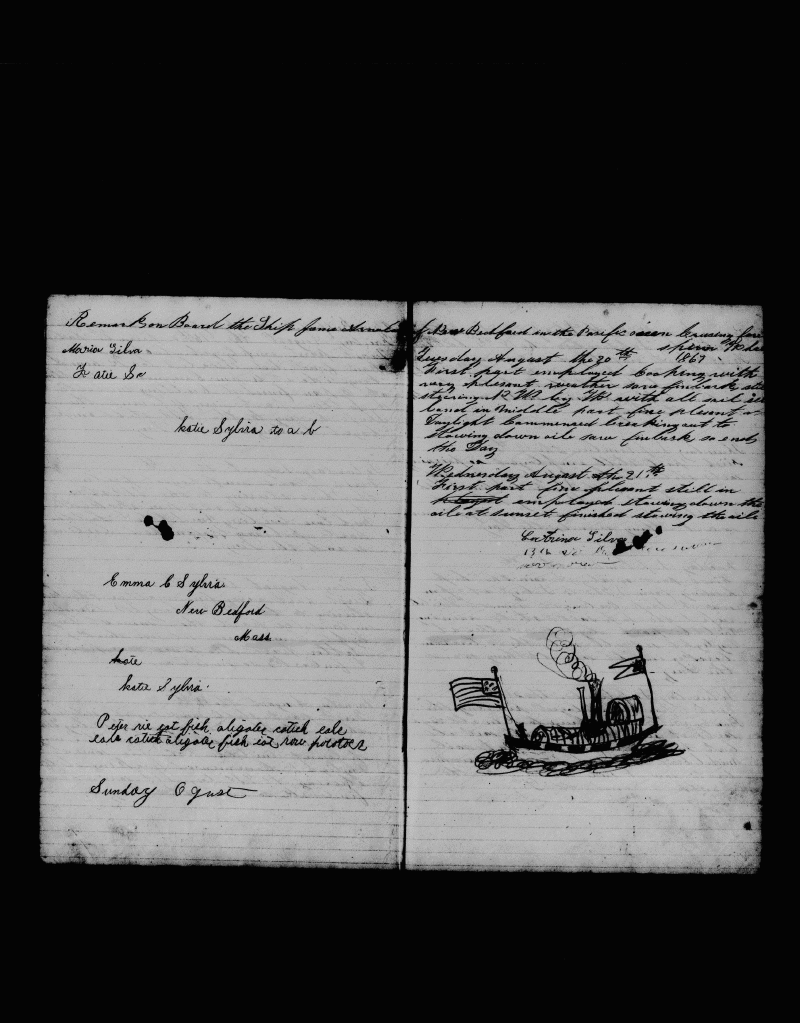 Remarks on Board the Ship James Arnold of New Bedford in the Pacific ocean Cruising for
sperm Whales
Maria Silva
Katie S
katie Sylvia to a b
Emma C Sylvia
New Bedford
Mass
kate
katie Sylvia
Peter rie eat fish aligatie catich eale
eale catich aligatie fish eat raw potatoes
Sunday Ogust
Tuesday August the 20th 1867
First part employed Cooking with
very plesent weather saw finback
steering N.W. by W. with all sail
Middle part fine plesent
Daylight Commenced breaking out to
stowing down oile saw finback so ends
the Day
Wednesday August the 21th
First part fine plesent still in
employed stowing down the
oile at sunset finished stowing the oile
Silva